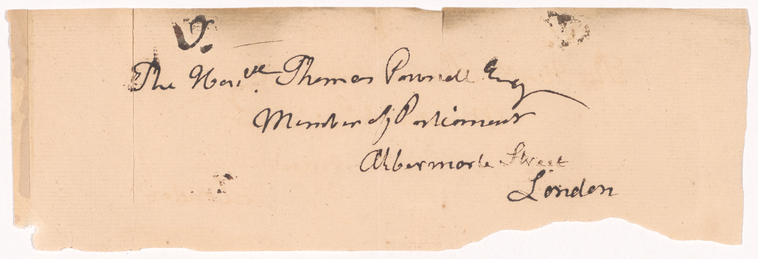 The Hon.ble Thomas Pownall Esq
Member of Parliament
Albermarle Street
London